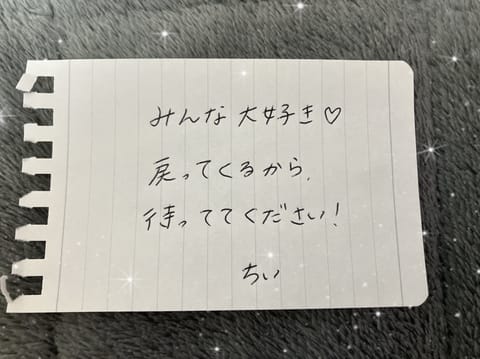 みんな大好き♡
戻ってくるから、
待っててください!
ちい